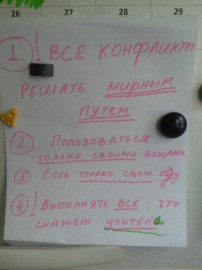 26 27 28 29 30
1 ! ВСЕ КОНФЛИКТЫ
РЕШАТЬ МИРНЫМ
ПУТЕМ
2. ПОЛЬЗОВАТЬСЯ
ТОЛЬКО СВОИМИ ВЕЩАМИ
3 ЕСТЬ ТОЛЬКО СВОЮ ЕДУ
4 ! ВЫПОЛНЯТЬ ВСЁ, ЧТО
СКАЖЕТ УЧИТЕЛЬ